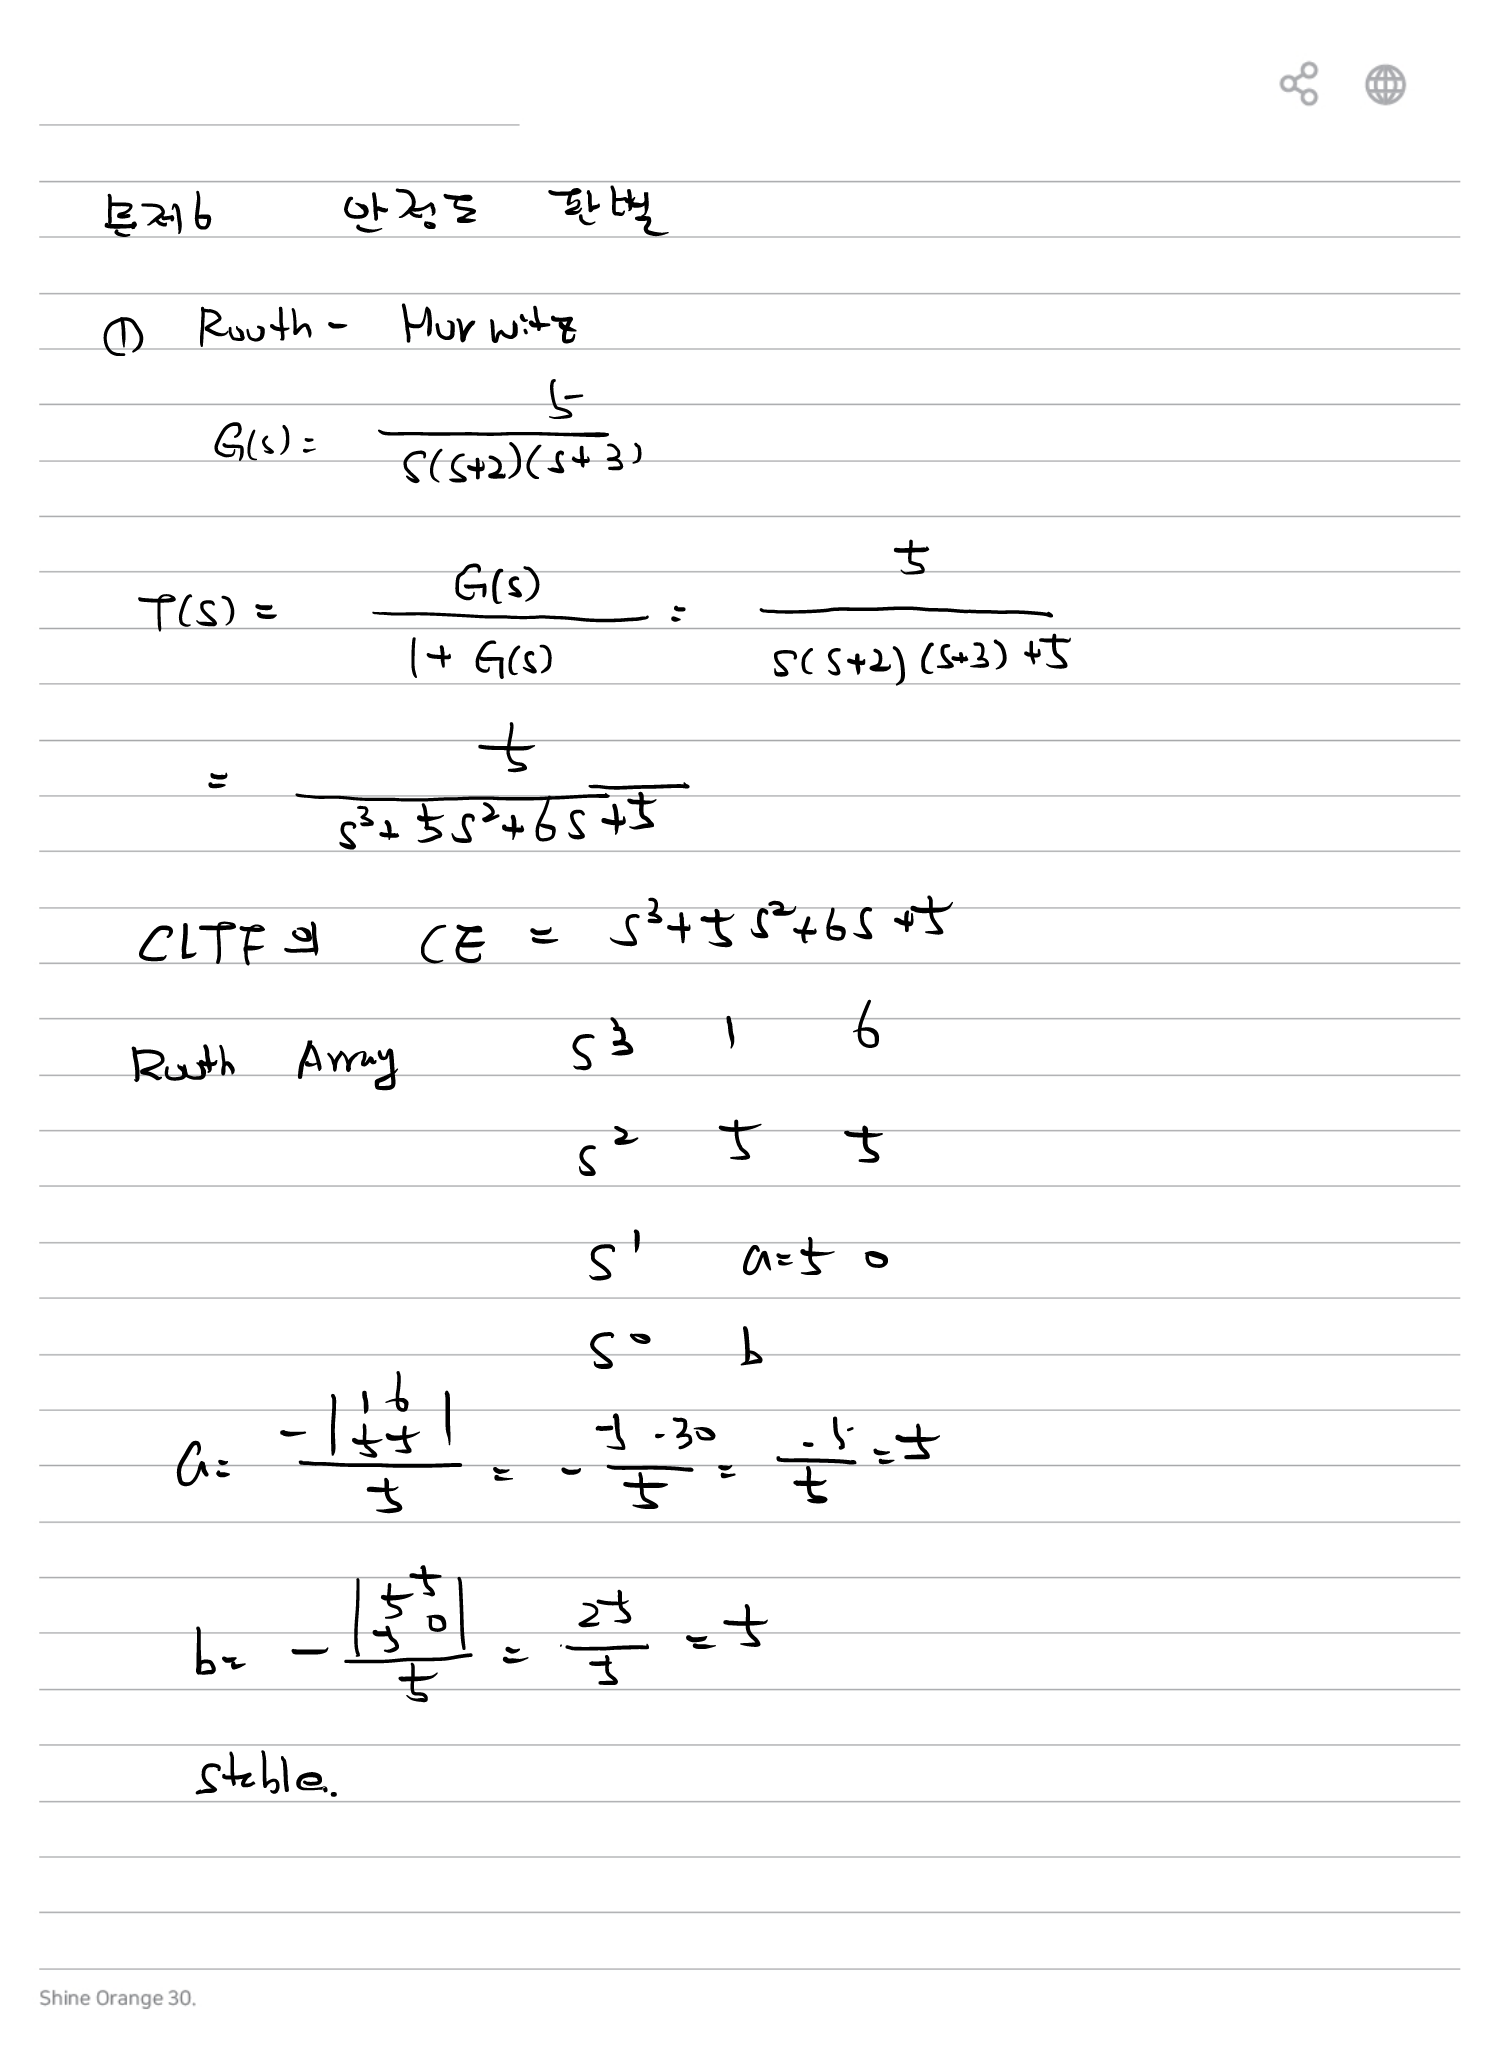 문제6 안정도 판별
① Routh - Hurwitz
G(s) = 5 / s(s+2)(s+3)
T(s) = G(s) / 1 + G(s) = 5 / s(s+2)(s+3)+5
= 5 / s³+5s²+6s+5
CLTF의 CE = s³+5s²+6s+5
Routh Array s³ 1 6
s² 5 5
s¹ a=5 0
s⁰ b
a = -|1 6 5 5| / 5 = - 5-30 / 5 = -5 / 5 = 5
b = -|5 5 5 0| / 5 = 25 / 5 = 5
stable.
Shine Orange 30.